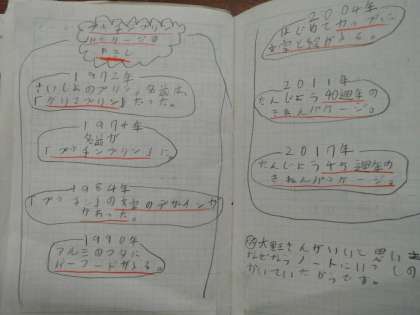 1972年
さいしょのプリン、名前は、
「グリコプリン」だった。
1974年
名前が
「プッチンプリン」に。
1984年
「プッチン」の文字のデザインが
かわった。
1990年
アルミのフタに
バーコードが入る。
2004年
はじめてカップに
文字と絵が入る。
2011年
たんじょう40週年の
きねんパッケージ。
2017年
たんじょう45週年の
きねんパッケージ。
さんがいいと思い
ノートに
かいていたからです。